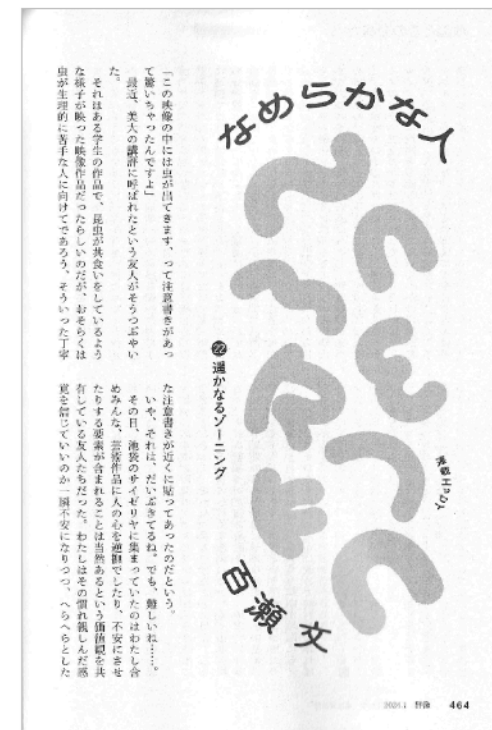 なめらかな人
連載エッセイ
百瀬文
㉒遥かなるゾーニング
「この映像の中には虫が出てきます、って注意書きがあっ
て驚いちゃったんですよ」
最近、美大の講評に呼ばれたという友人がそうつぶやい
た。
それはある学生の作品で、昆虫が共食いをしているよう
な様子が映った映像作品だったらしいのだが、おそらくは
虫が生理的に苦手な人に向けてであろう、そういった丁寧
な注意書きが近くに貼ってあったのだという。
いや、それは、だいぶきてるね。でも、難しいね……。
その日、池袋のサイゼリヤに集まっていたのはわたし含
めみんな、芸術作品に人の心を逆撫でしたり、不安にさせ
たりする要素が含まれることは当然あるという価値観を共
有している友人たちだった。わたしはその慣れ親しんだ感
覚を信じていいのか一瞬不安になりつつ、へらへらとした
2024.1 群像 464